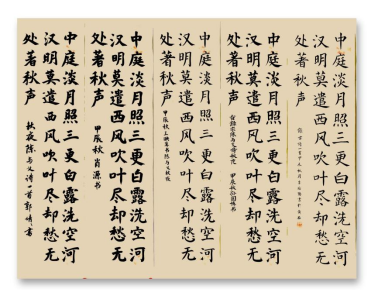 中庭淡月照三更白露洗空河
汉明莫遣西风吹叶尽却愁无
处著秋声
中庭淡月照三更白露洗空河
汉明莫遣西风吹叶尽却愁无
处著秋声
中庭淡月照三更白露洗空河
汉明莫遣西风吹叶尽却愁无
处著秋声
中庭淡月照三更白露洗空河
汉明莫遣西风吹叶尽却愁无
处著秋声
甲辰秋 肖源书
中庭淡月照三更白露洗空河
汉明莫遣西风吹叶尽却愁无
处著秋声
秋夜陈与义诗一首 书